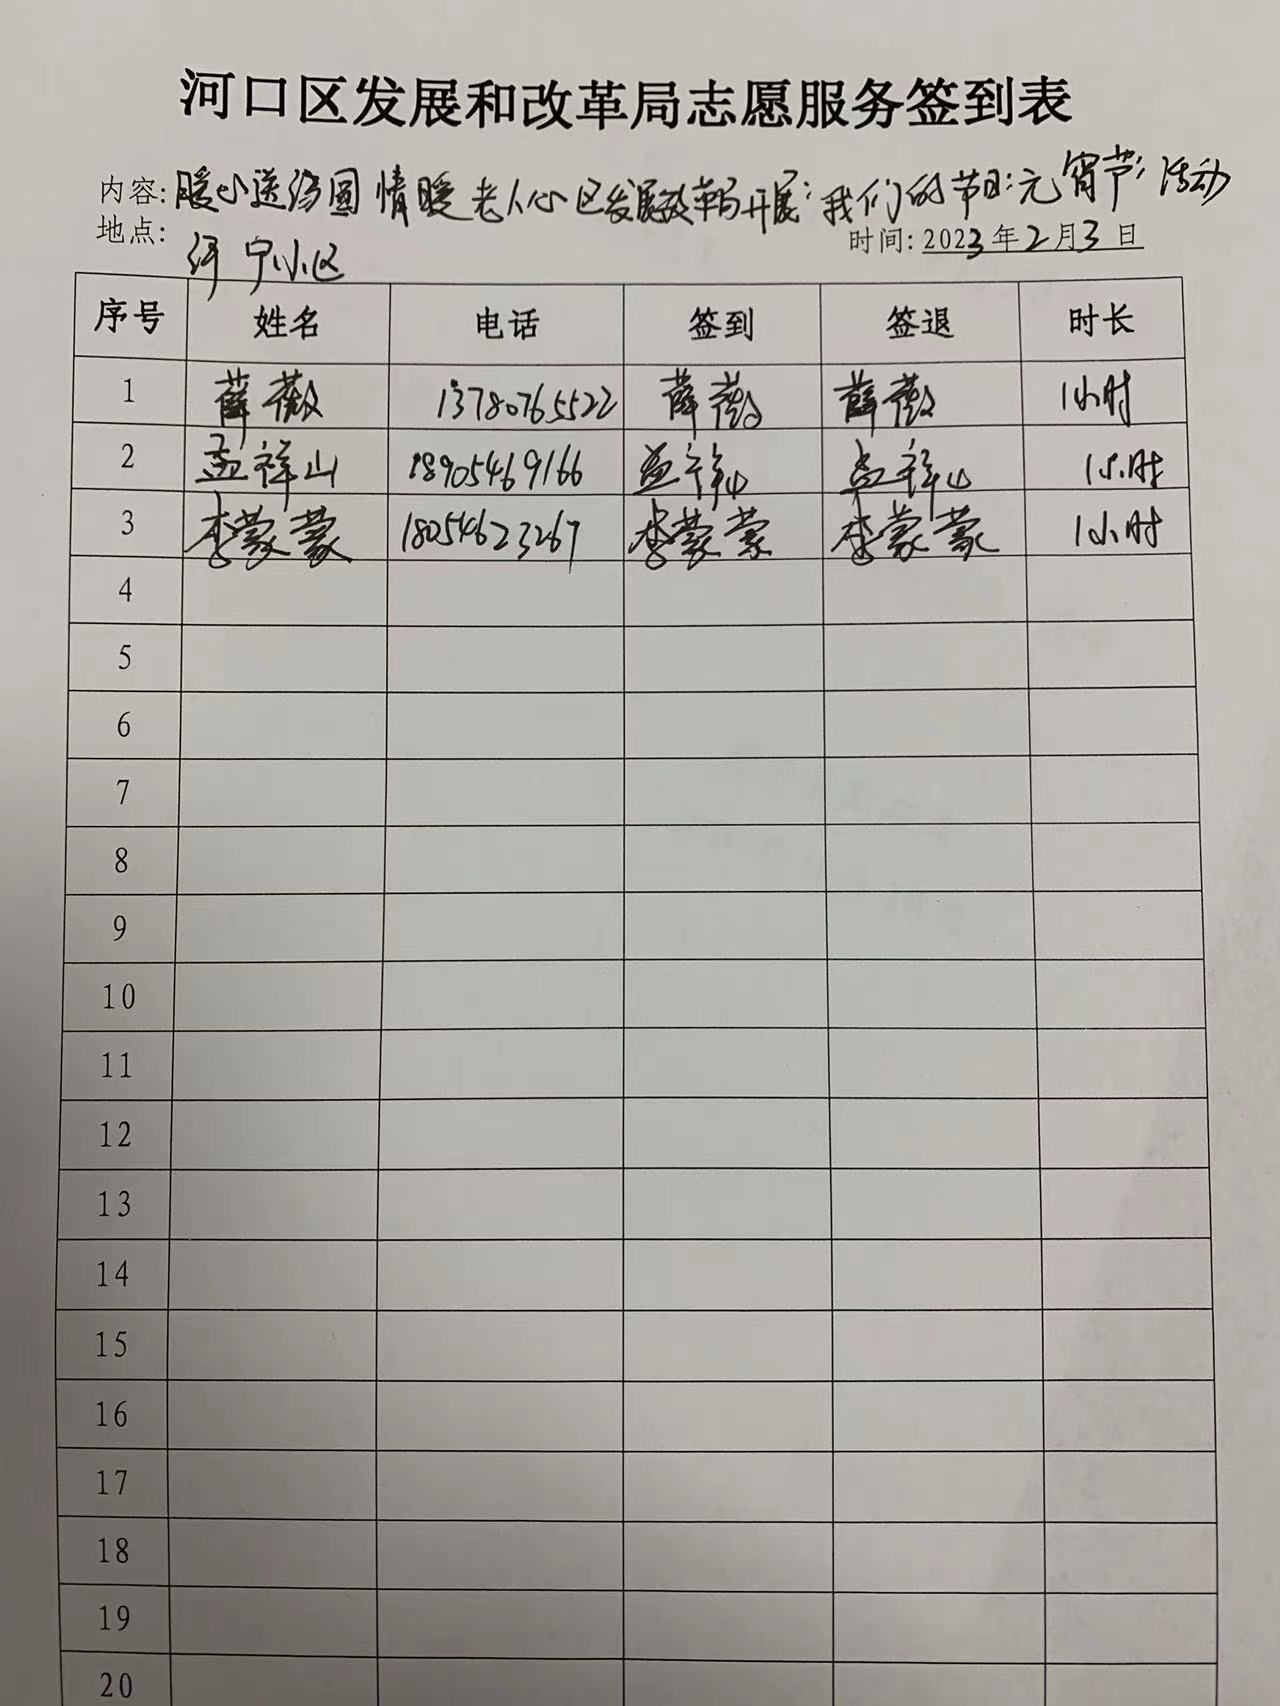 河口区发展和改革局志愿服务签到表
内容:暖心送汤圆 情暖老人心 区发展改革局开展“我们的节日·元宵节”活动
地点: 河宁小区 时间:2023年2月3日
序号 姓名 电话 签到 签退 时长
1 薛薇 13780765522 薛薇 薛薇 1小时
2 孟祥山 18905469166 孟祥山 孟祥山 1小时
3 李蒙蒙 18054623267 李蒙蒙 李蒙蒙 1小时
4
5
6
7
8
9
10
11
12
13
14
15
16
17
18
19
20